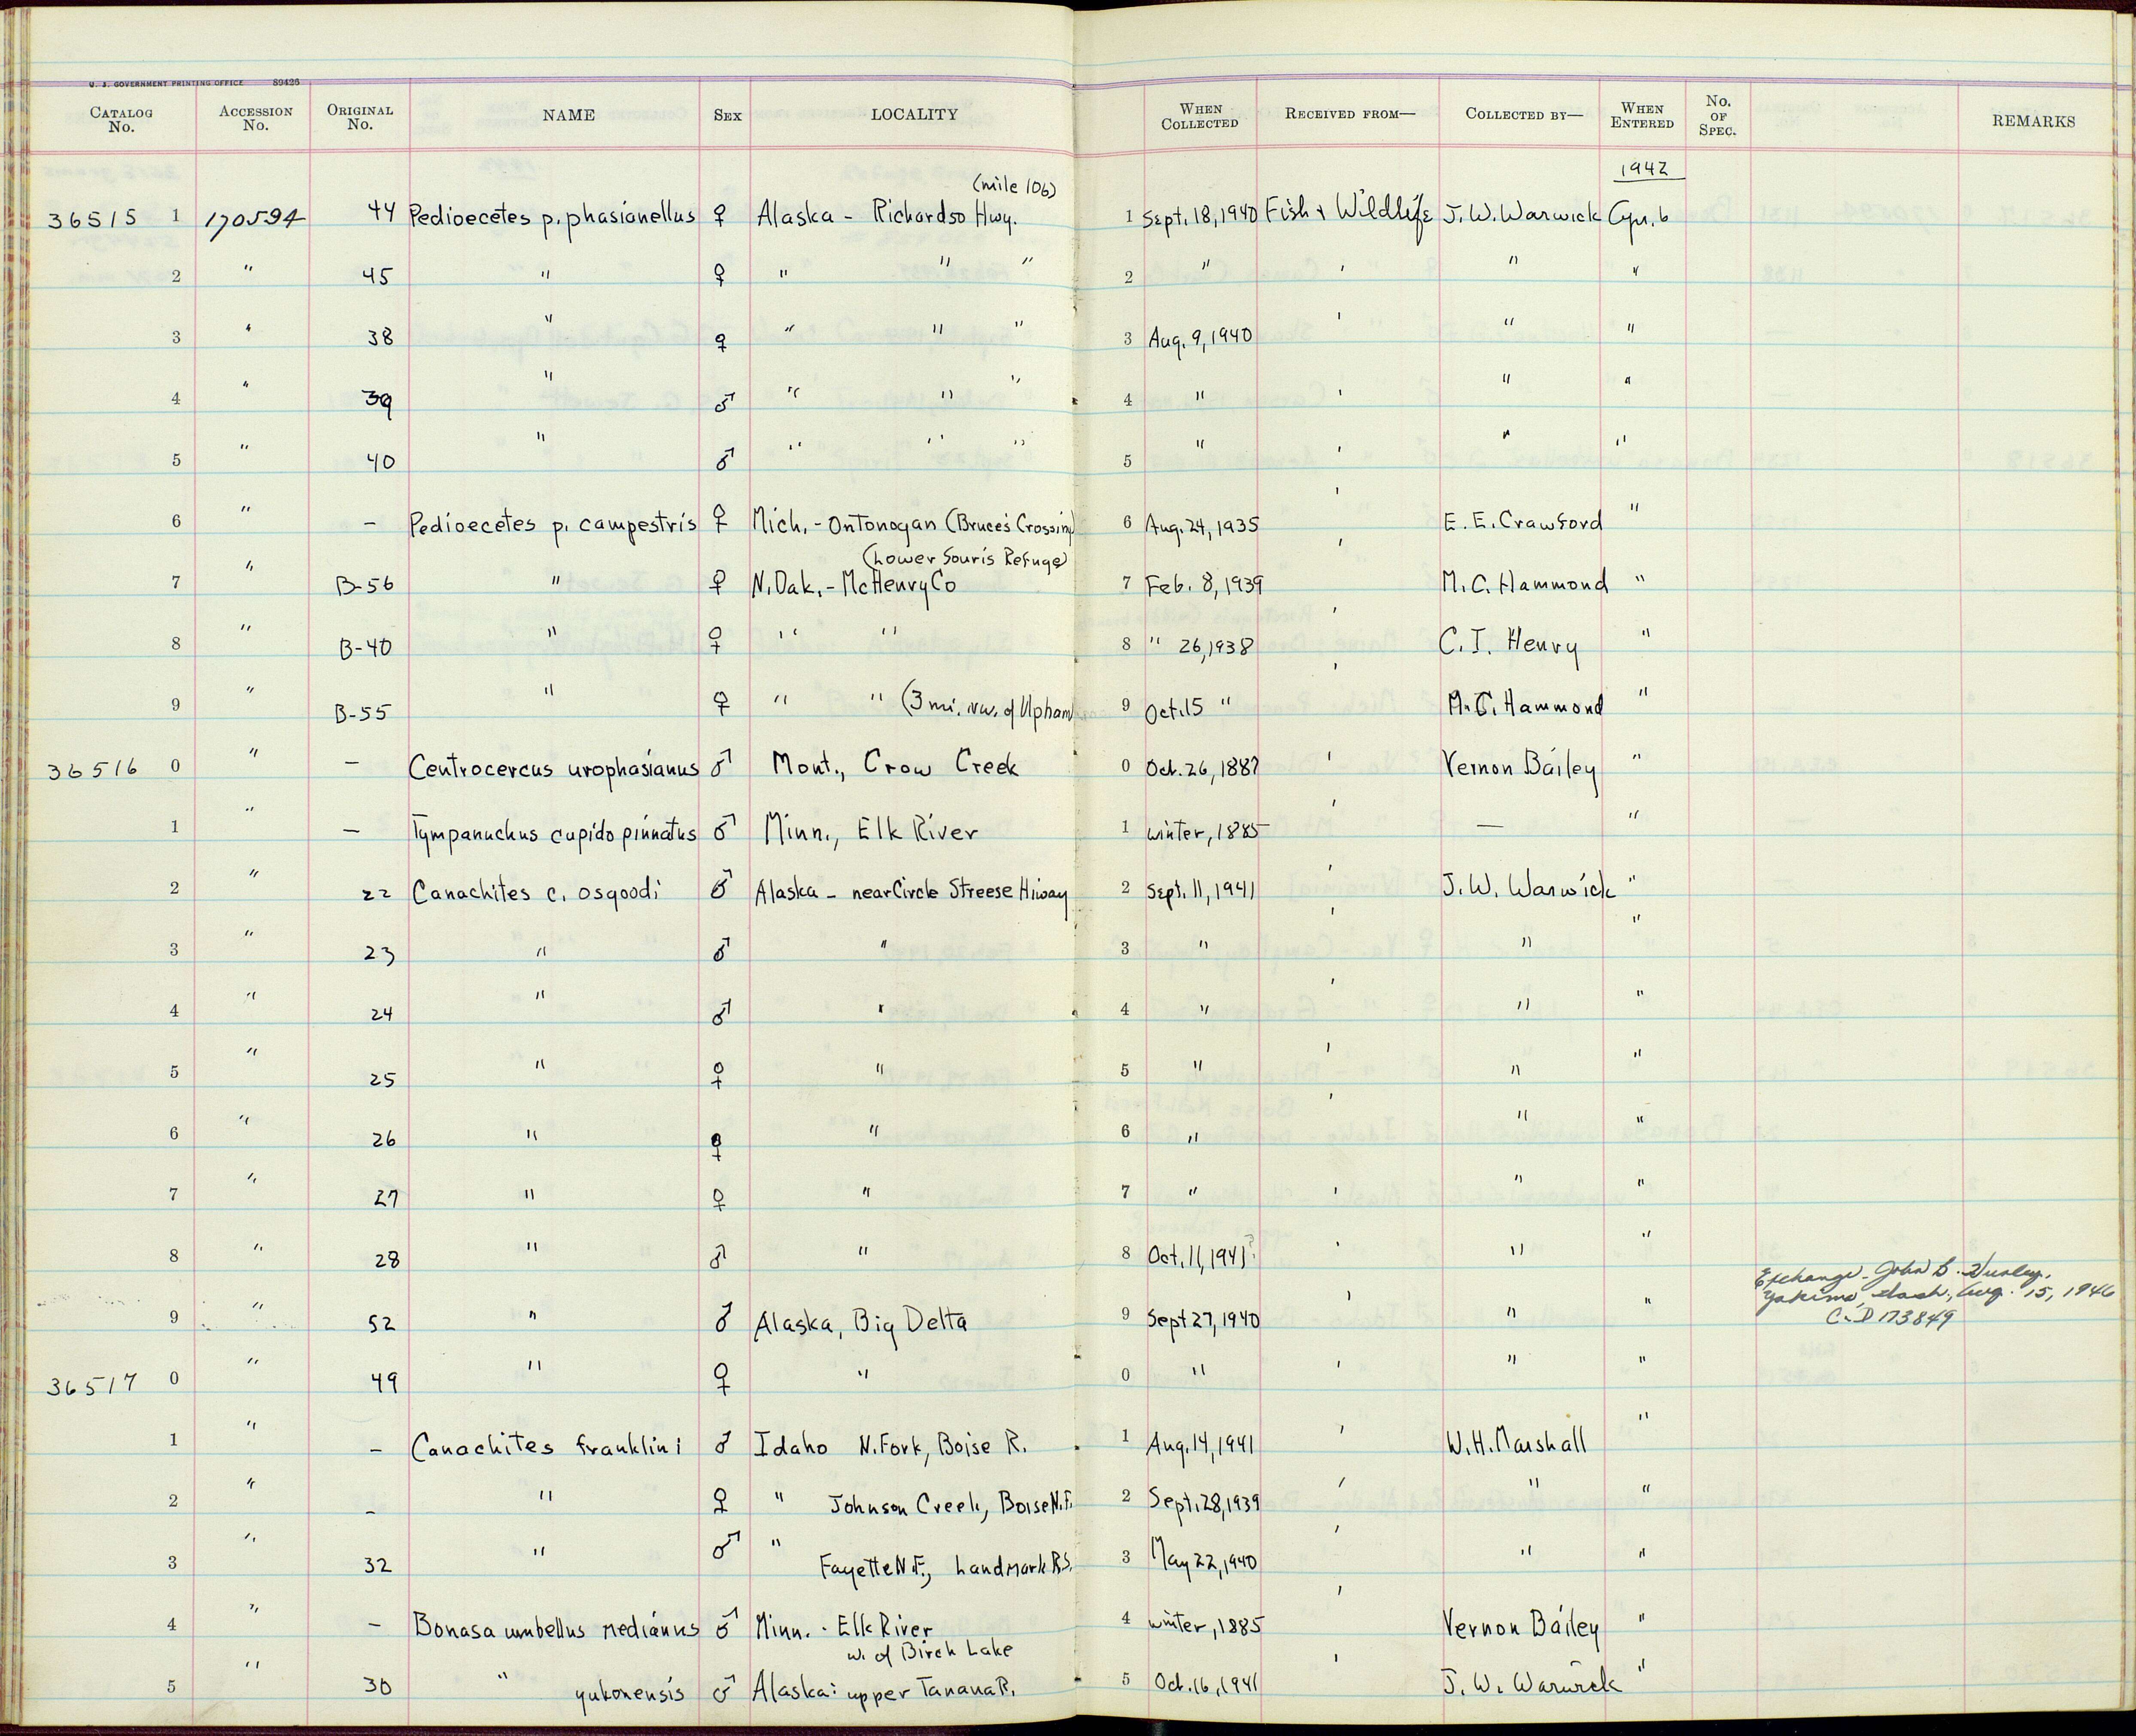 U. S. GOVERNMENT PRINTING OFFICE 89426
CATALOG No. ACCESSION No. ORIGINAL No. NAME SEX LOCALITY WHEN COLLECTED RECEIVED FROM— COLLECTED BY— WHEN ENTERED No. OF SPEC. REMARKS
(mile 106) 1942
36515 1 170594 44 Pedioecetes p. phasianellus ♀ Alaska - Richardso Hwy. 1 Sept. 18, 1940 Fish & Wildlife J. W. Warwick 6
2 " 45 " ♀ " " " 2 " ' " "
3 " 38 " ♀ " " " 3 Aug. 9, 1940 ' " "
4 " 39 " ♂ " " " 4 " ' " "
5 " 40 " ♂ " " " 5 " ' " "
6 " — Pedioecetes p. campestris ♀ Mich. - Ontonogan (Bruce's Crossing) 6 Aug. 24, 1935 ' E. E. Crawford "
(Lower Souris Refuge)
7 " B-56 " ♀ N. Dak. - McHenry Co 7 Feb. 8, 1939 ' M. C. Hammond "
8 " B-40 " ♀ " " 8 " 26, 1938 ' C. J. Henry "
9 " B-55 " ♀ " " (3 mi. nw. of Upham) 9 Oct. 15 " ' M. C. Hammond "
36516 0 " — Centrocercus urophasianus ♂ Mont., Crow Creek 0 Oct. 26, 1887 ' Vernon Bailey "
1 " — Tympanuchus cupido pinnatus ♂ Minn., Elk River 1 winter, 1885 ' — "
2 " 22 Canachites c. osgoodi ♂ Alaska - near Circle Streese Hiway 2 Sept. 11, 1941 ' J. W. Warwick "
3 " 23 " ♂ " 3 " ' " "
4 " 24 " ♂ " 4 " ' " "
5 " 25 " ♀ " 5 " ' " "
6 " 26 " ♀ " 6 " ' " "
7 " 27 " ♀ " 7 " ' " "
8 " 28 " ♂ " 8 Oct. 11, 1941? ' " "
Exchange - John B.
Yakima, Wash., Aug. 15, 1946
9 " 52 " ♂ Alaska, Big Delta 9 Sept 27, 1940 ' " " C. D 173849
36517 0 " 49 " ♀ " 0 " ' " "
1 " — Canachites franklini ♂ Idaho N. Fork, Boise R. 1 Aug. 14, 1941 ' W. H. Marshall "
2 " — " ♀ " Johnson Creek, Boise N.F. 2 Sept. 28, 1939 ' " "
3 " 32 " ♂ " Fayette N.F., Landmark R.S. 3 May 22, 1940 ' " "
4 " — Bonasa umbellus medianus ♂ Minn. - Elk River 4 winter, 1885 ' Vernon Bailey "
w. of Birch Lake
5 " 30 " yukonensis ♂ Alaska: upper Tanana R. 5 Oct. 16, 1941 ' J. W. Warwick "